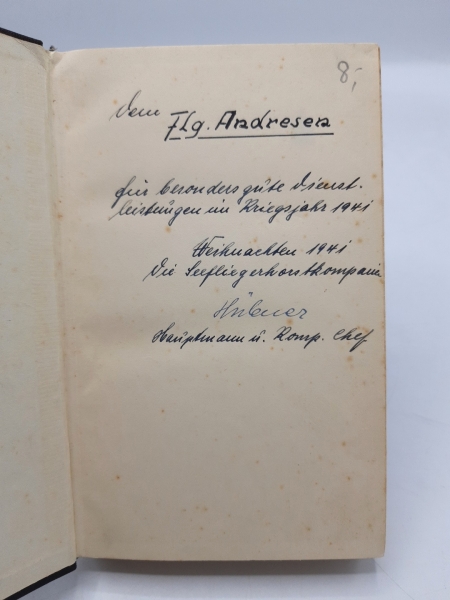 8,-
Dem Flg. Andresen
für besonders gute Dienst-
leistungen im Kriegsjahr 1941
Weihnachten 1941
Die Seefliegerhorstkompanie
Hübner
Hauptmann u. Komp. Chef